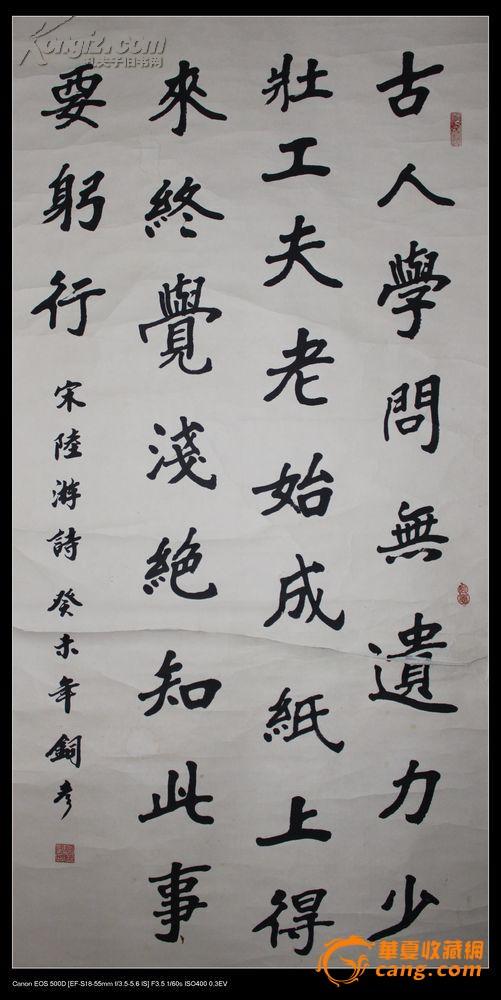 古人學問無遺力少
壯工夫老始成紙上得
來終覺淺絕知此事
要躬行
宋陸游詩 癸未年 銅彥
Kongfz.com
孔夫子旧书网
華夏收藏網
cang.com
Canon EOS 500D [EF-S18-55mm f/3.5-5.6 IS] F3.5 1/60s ISO400 0.3EV